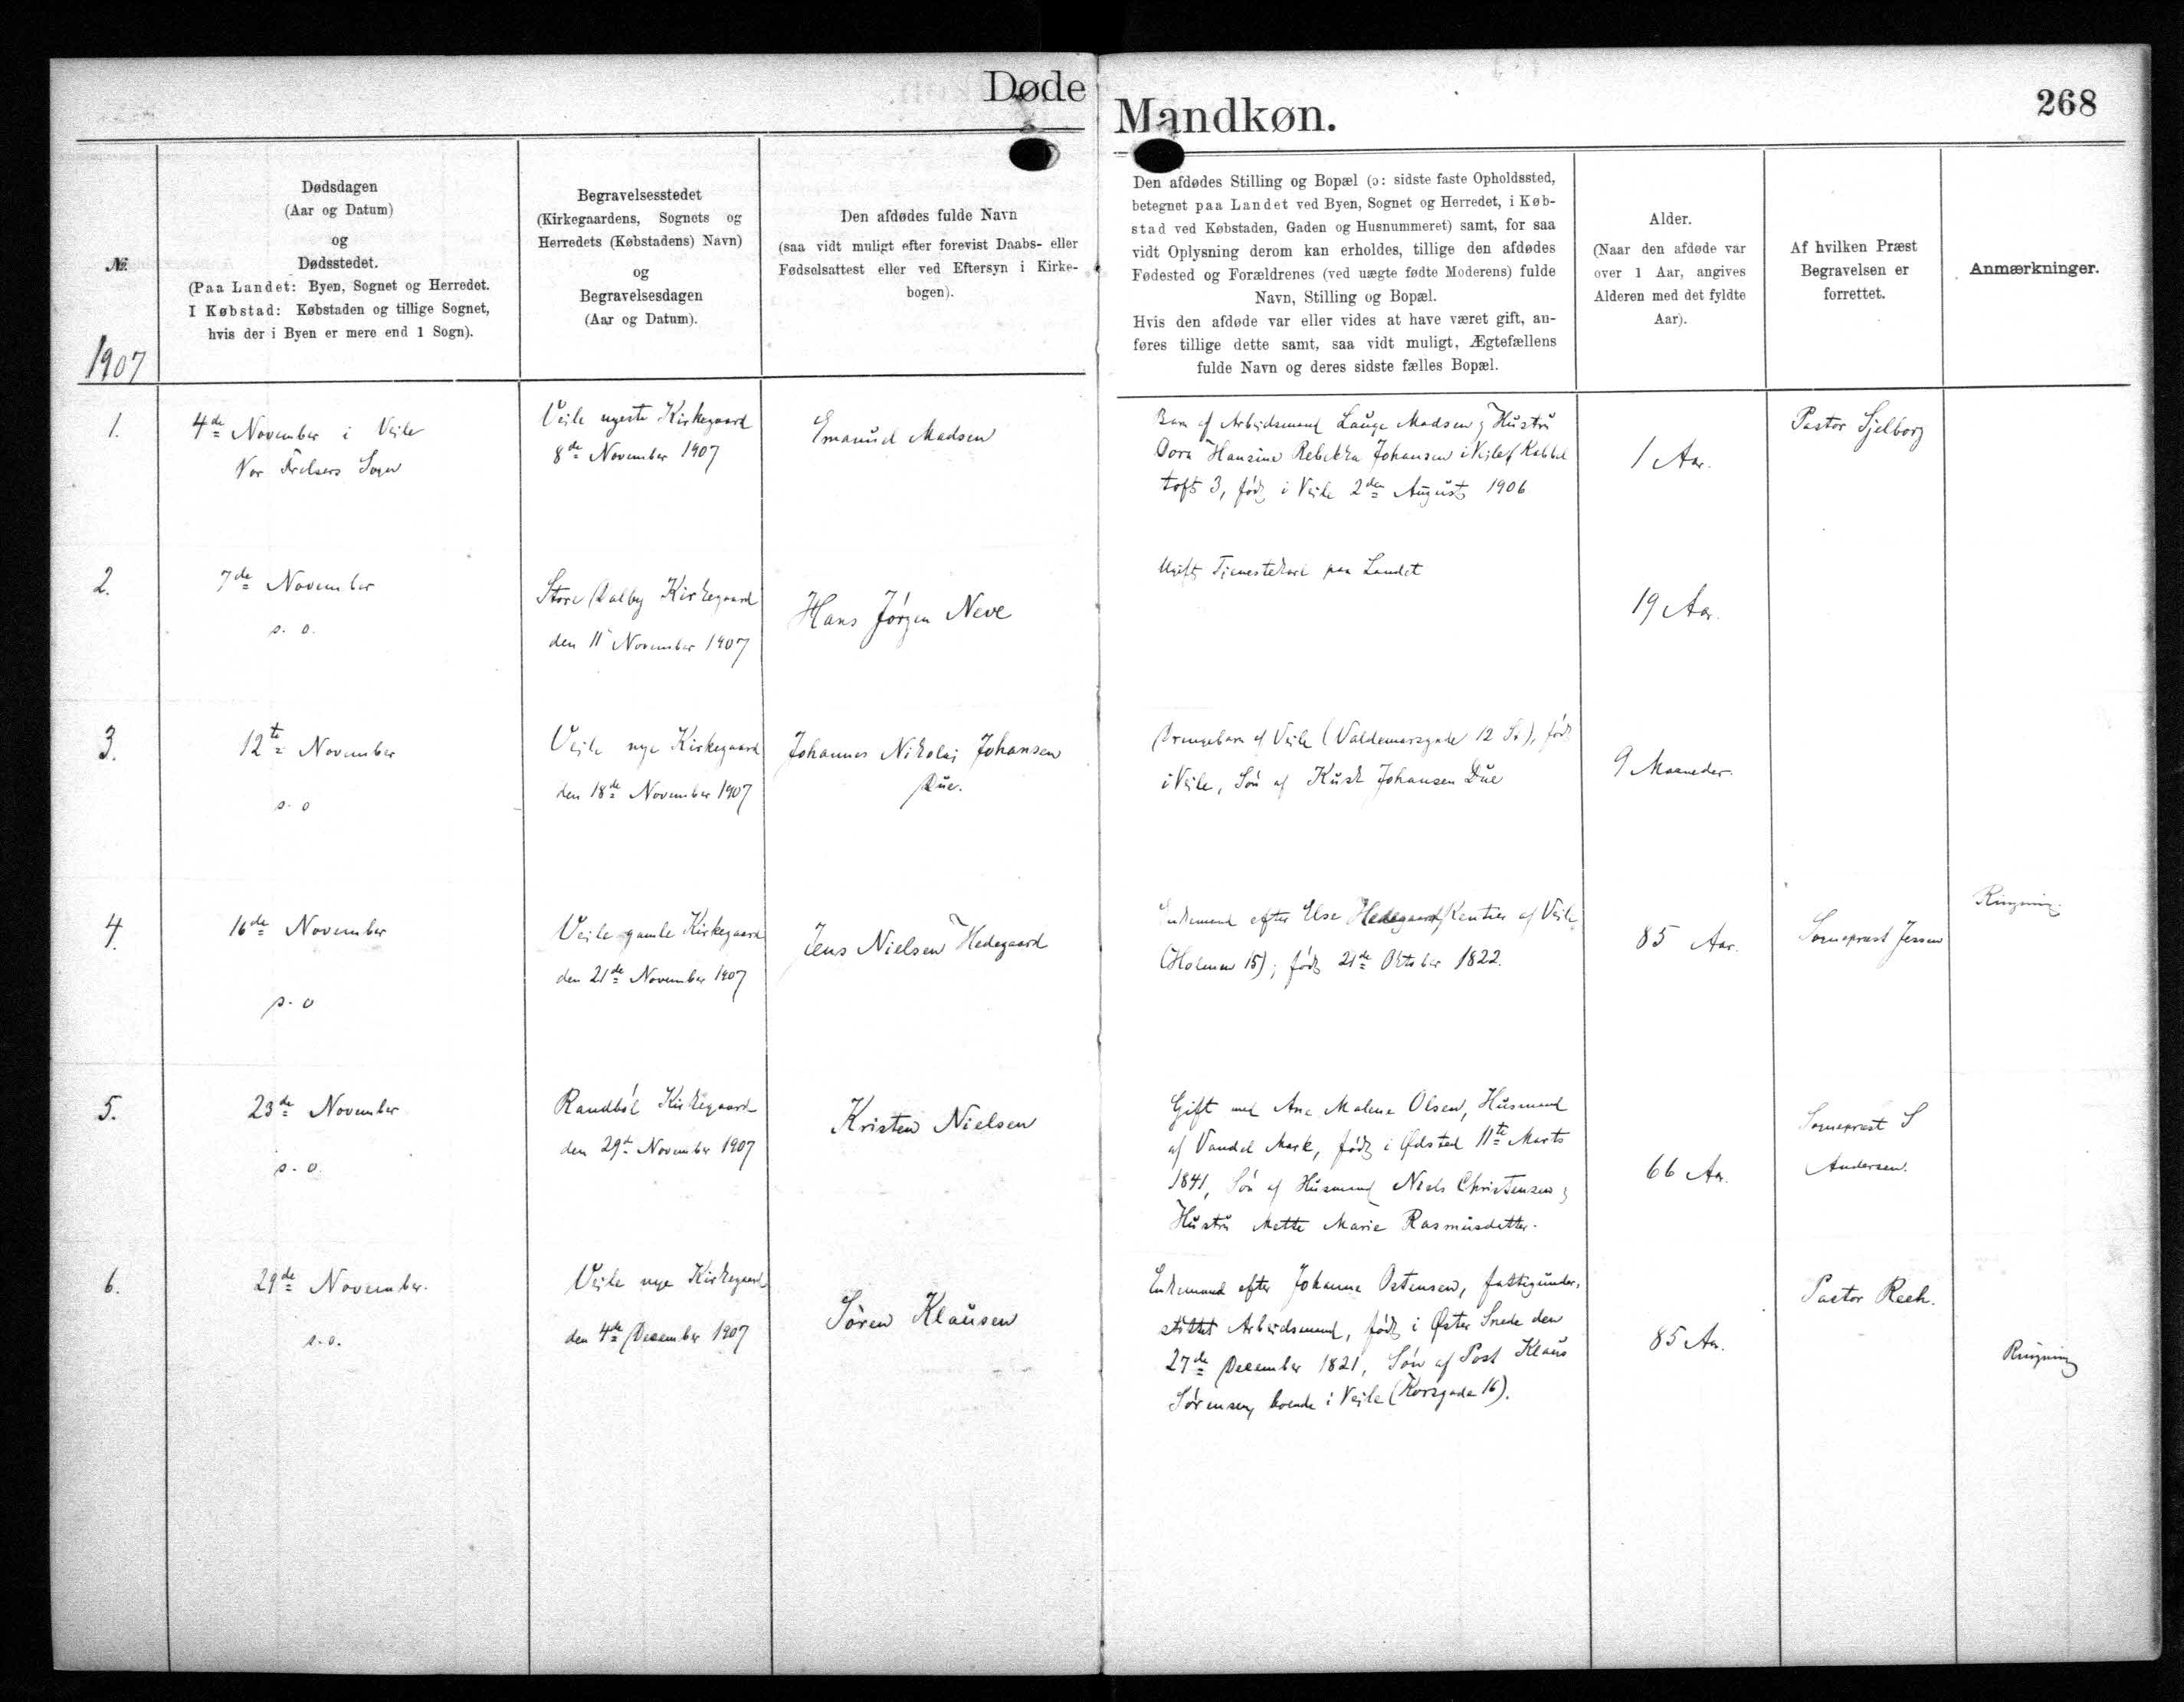 Døde
Mandkøn.
268
№
1907
Dødsdagen
(Aar og Datum)
og
Dødsstedet.
(Paa Landet: Byen, Sognet og Herredet.
I Købstad: Købstaden og tillige Sognet,
hvis der i Byen er mere end 1 Sogn).
Begravelsesstedet
(Kirkegaardens, Sognets og
Herredets (Købstadens) Navn)
og
Begravelsesdagen
(Aar og Datum).
Den afdødes fulde Navn
(saa vidt muligt efter forevist Daabs- eller
Fødselsattest eller ved Eftersyn i Kirke-
bogen).
Den afdødes Stilling og Bopæl (ɔ: sidste faste Opholdssted,
betegnet paa Landet ved Byen, Sognet og Herredet, i Køb-
stad ved Købstaden, Gaden og Husnummeret) samt, for saa
vidt Oplysning derom kan erholdes, tillige den afdødes
Fødested og Forældrenes (ved uægte fødte Moderens) fulde
Navn, Stilling og Bopæl.
Hvis den afdøde var eller vides at have været gift, an-
føres tillige dette samt, saa vidt muligt, Ægtefællens
fulde Navn og deres sidste fælles Bopæl.
Alder.
(Naar den afdøde var
over 1 Aar, angives
Alderen med det fyldte
Aar).
Af hvilken Præst
Begravelsen er
forrettet.
Anmærkninger.
1.
4de November i Vejle
Vor Frelsers Sogn
Vejle nyeste Kirkegaard
8de November 1907
Emanuel Madsen
Barn af Arbejdsmand Lauge Madsen og Hustru
Dora Hansine Rebekka Johansen i Vejle (Kabbel
toft 3, født i Vejle 2den August 1906
1 Aar.
Pastor Sjelborg
2.
7de November
s. o.
Store Dalby Kirkegaard
den 11 November 1907
Hans Jørgen Neve
Ugift Tjenestekarl paa Landet
19 Aar.
3.
12te November
s. o
Vejle nye Kirkegaard
den 18de November 1907
Johannes Nikolaj Johansen
Due.
Drengebarn af Vejle (Valdemarsgade 12 St), født
i Vejle, Søn af Kusk Johansen Due
9 Maaneder.
4.
16de November
s. o
Vejle gamle Kirkegaard
den 21de November 1907
Jens Nielsen Hedegaard
Enkemand efter Else Hedegaard, Rentier af Vejle
(Holmen 15); født 21de Oktober 1822.
85 Aar.
Sognepræst Jessen
Ringning.
5.
23de November
s. o.
Randbøl Kirkegaard
den 29de November 1907
Kristen Nielsen
Gift med Ane Malene Olsen, Husmand
af Vandel Mark, født i Ødsted 11te Marts
1841, Søn af Husmand Niels Christensen og
Hustru Mette Marie Rasmusdatter.
66 Aar.
Sognepræst S
Andersen.
6.
29de November.
s. o.
Vejle nye Kirkegaard
den 4de December 1907
Søren Klausen
Enkemand efter Johanne Ostensen, fattigunder,
støttet Arbejdsmand, født i Øster Snede den
27de December 1821, Søn af Post Klaus
Sørensen, boende i Vejle (Korsgade 16).
85 Aar.
Pastor Reeh.
Ringning